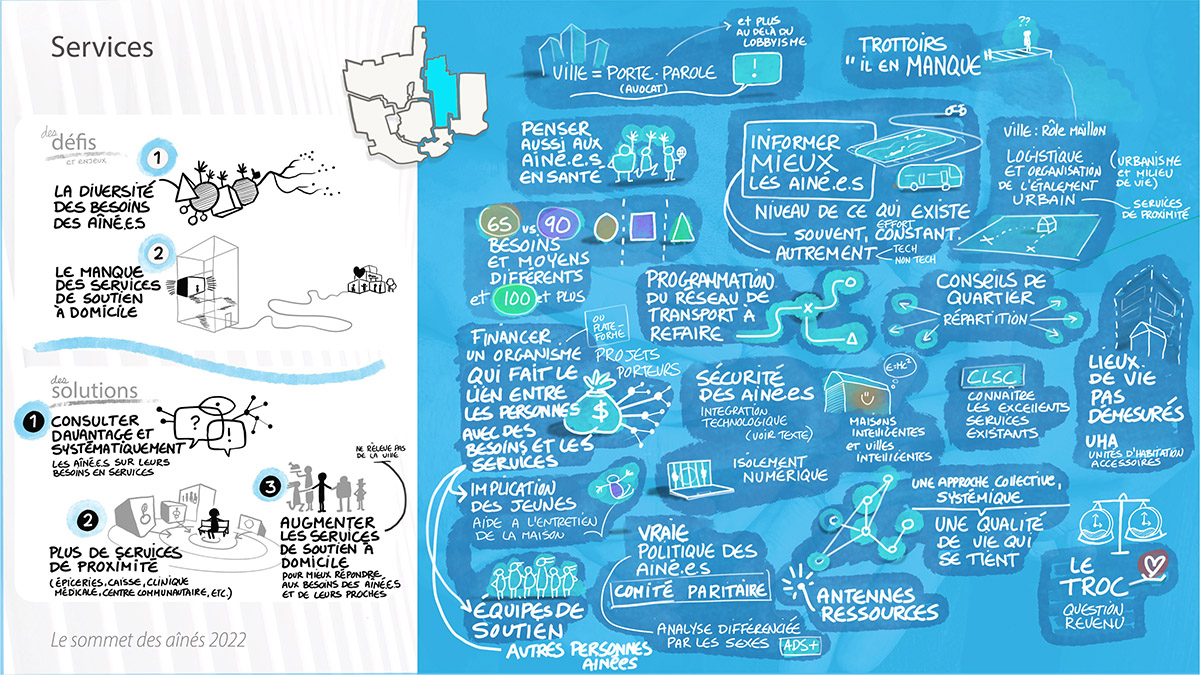 Services
des
défis
et enjeux
1
LA DIVERSITÉ
DES BESOINS
DES AÎNÉ.ES
2
LE MANQUE
DES SERVICES
DE SOUTIEN
À DOMICILE
des
solutions
1
CONSULTER
DAVANTAGE ET
SYSTÉMATIQUEMENT
LES AÎNÉ.ES SUR LEURS
BESOINS EN SERVICES
?
!
2
PLUS DE SERVICES
DE PROXIMITÉ
(ÉPICERIES, CAISSE, CLINIQUE
MÉDICALE, CENTRE COMMUNAUTAIRE, ETC.)
NE RELÈVE PAS
DE LA VILLE
3
AUGMENTER
LES SERVICES
DE SOUTIEN À
DOMICILE
POUR MIEUX RÉPONDRE
AUX BESOINS DES AINÉ.ES
ET DE LEURS PROCHES
Le sommet des aînés 2022
VILLE = PORTE-PAROLE
(AVOCAT)
et PLUS
AU DELÀ DU
LOBBYISME
!
TROTTOIRS
"IL EN MANQUE"
??
PENSER
AUSSI AUX
AINÉ.E.S
EN SANTÉ
INFORMER
MIEUX
LES AINÉ.E.S
NIVEAU DE CE QUI EXISTE
SOUVENT, EFFORT CONSTANT,
AUTREMENT
TECH
NON TECH
VILLE : RÔLE MAILLON
LOGISTIQUE
ET ORGANISATION
DE L'ÉTALEMENT
URBAIN
(URBANISME
ET MILIEU
DE VIE)
SERVICES
DE PROXIMITÉ
65 vs 90
BESOINS
ET MOYENS
DIFFÉRENTS
et 100 et PLUS
PROGRAMMATION
DU RÉSEAU DE
TRANSPORT À
REFAIRE
CONSEILS DE
QUARTIER
RÉPARTITION
LIEUX
DE VIE
PAS
DÉMESURÉS
UHA
UNITÉS D'HABITATION
ACCESSOIRES
FINANCER
UN ORGANISME
QUI FAIT LE
LIEN ENTRE
LES PERSONNES
AVEC DES
BESOINS ET LES
SERVICES
OU
PLATE-
FORME
PROJETS
PORTEURS
$
SÉCURITÉ
DES AINÉ.E.S
INTEGRATION
TECHNOLOGIQUE
(VOIR TEXTE)
E=MC²
MAISONS
INTELLIGENTES
ET VILLES
INTELLIGENTES
CLSC
CONNAÎTRE
LES EXCELLENTS
SERVICES
EXISTANTS
IMPLICATION
DES JEUNES
AIDE A L'ENTRETIEN
DE LA MAISON
ISOLEMENT
NUMÉRIQUE
UNE APPROCHE COLLECTIVE,
SYSTÉMIQUE
UNE QUALITÉ
DE VIE QUI
SE TIENT
VRAIE
POLITIQUE DES
AINÉ.E.S
COMITÉ PARITAIRE
ANALYSE DIFFÉRENCIÉE
PAR LES SEXES ADS+
ANTENNES
RESSOURCES
LE
TROC
QUESTION
REVENU
ÉQUIPES DE
SOUTIEN
AUTRES PERSONNES
AINÉES